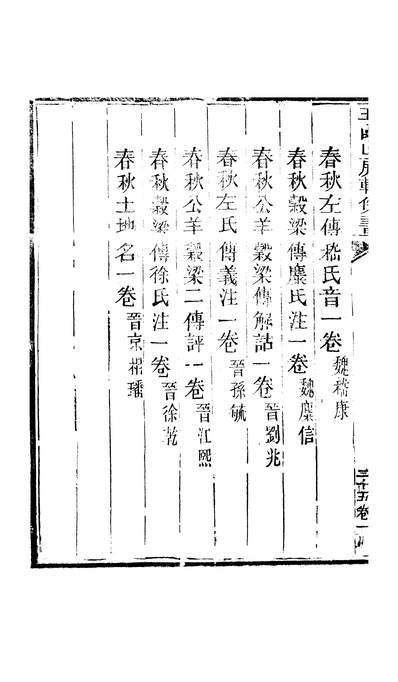 玉函山房輯佚書
三十五卷一
春秋左傳嵇氏音一卷魏嵇康
春秋穀梁傳麋氏注一卷魏麋信
春秋公羊穀梁傳解詁一卷晉劉兆
春秋左氏傳義注一卷晉孫毓
春秋公羊穀梁二傳評一卷晉江熙
春秋穀梁傳徐氏注一卷晉徐乾
春秋土地名一卷晉京相璠